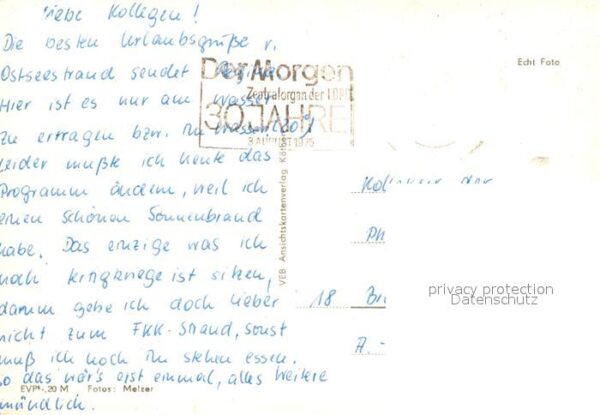 Liebe Kollegen!
Die besten Urlaubsgrüße v.
Ostseestrand sendet Regina
Hier ist es nur am Wasser
zu ertragen bzw. im Wasser (20°)
Leider mußte ich heute das
Programm ändern, weil ich
einen schönen Sonnenbrand
habe. Das einzige was ich
noch hinkriege ist sitzen,
darum gehe ich doch lieber
nicht zum FKK-Strand, sonst
muß ich noch im stehen essen.
So das wär's erst einmal, alles weitere
mündlich.
EVP -,20 M Fotos: Melzer
VEB Ansichtskartenverlag
Der Morgen
Zentralorgan der LDPD
30 JAHRE
3. AUGUST 1975
Echt Foto
18
A.-
privacy protection
Datenschutz